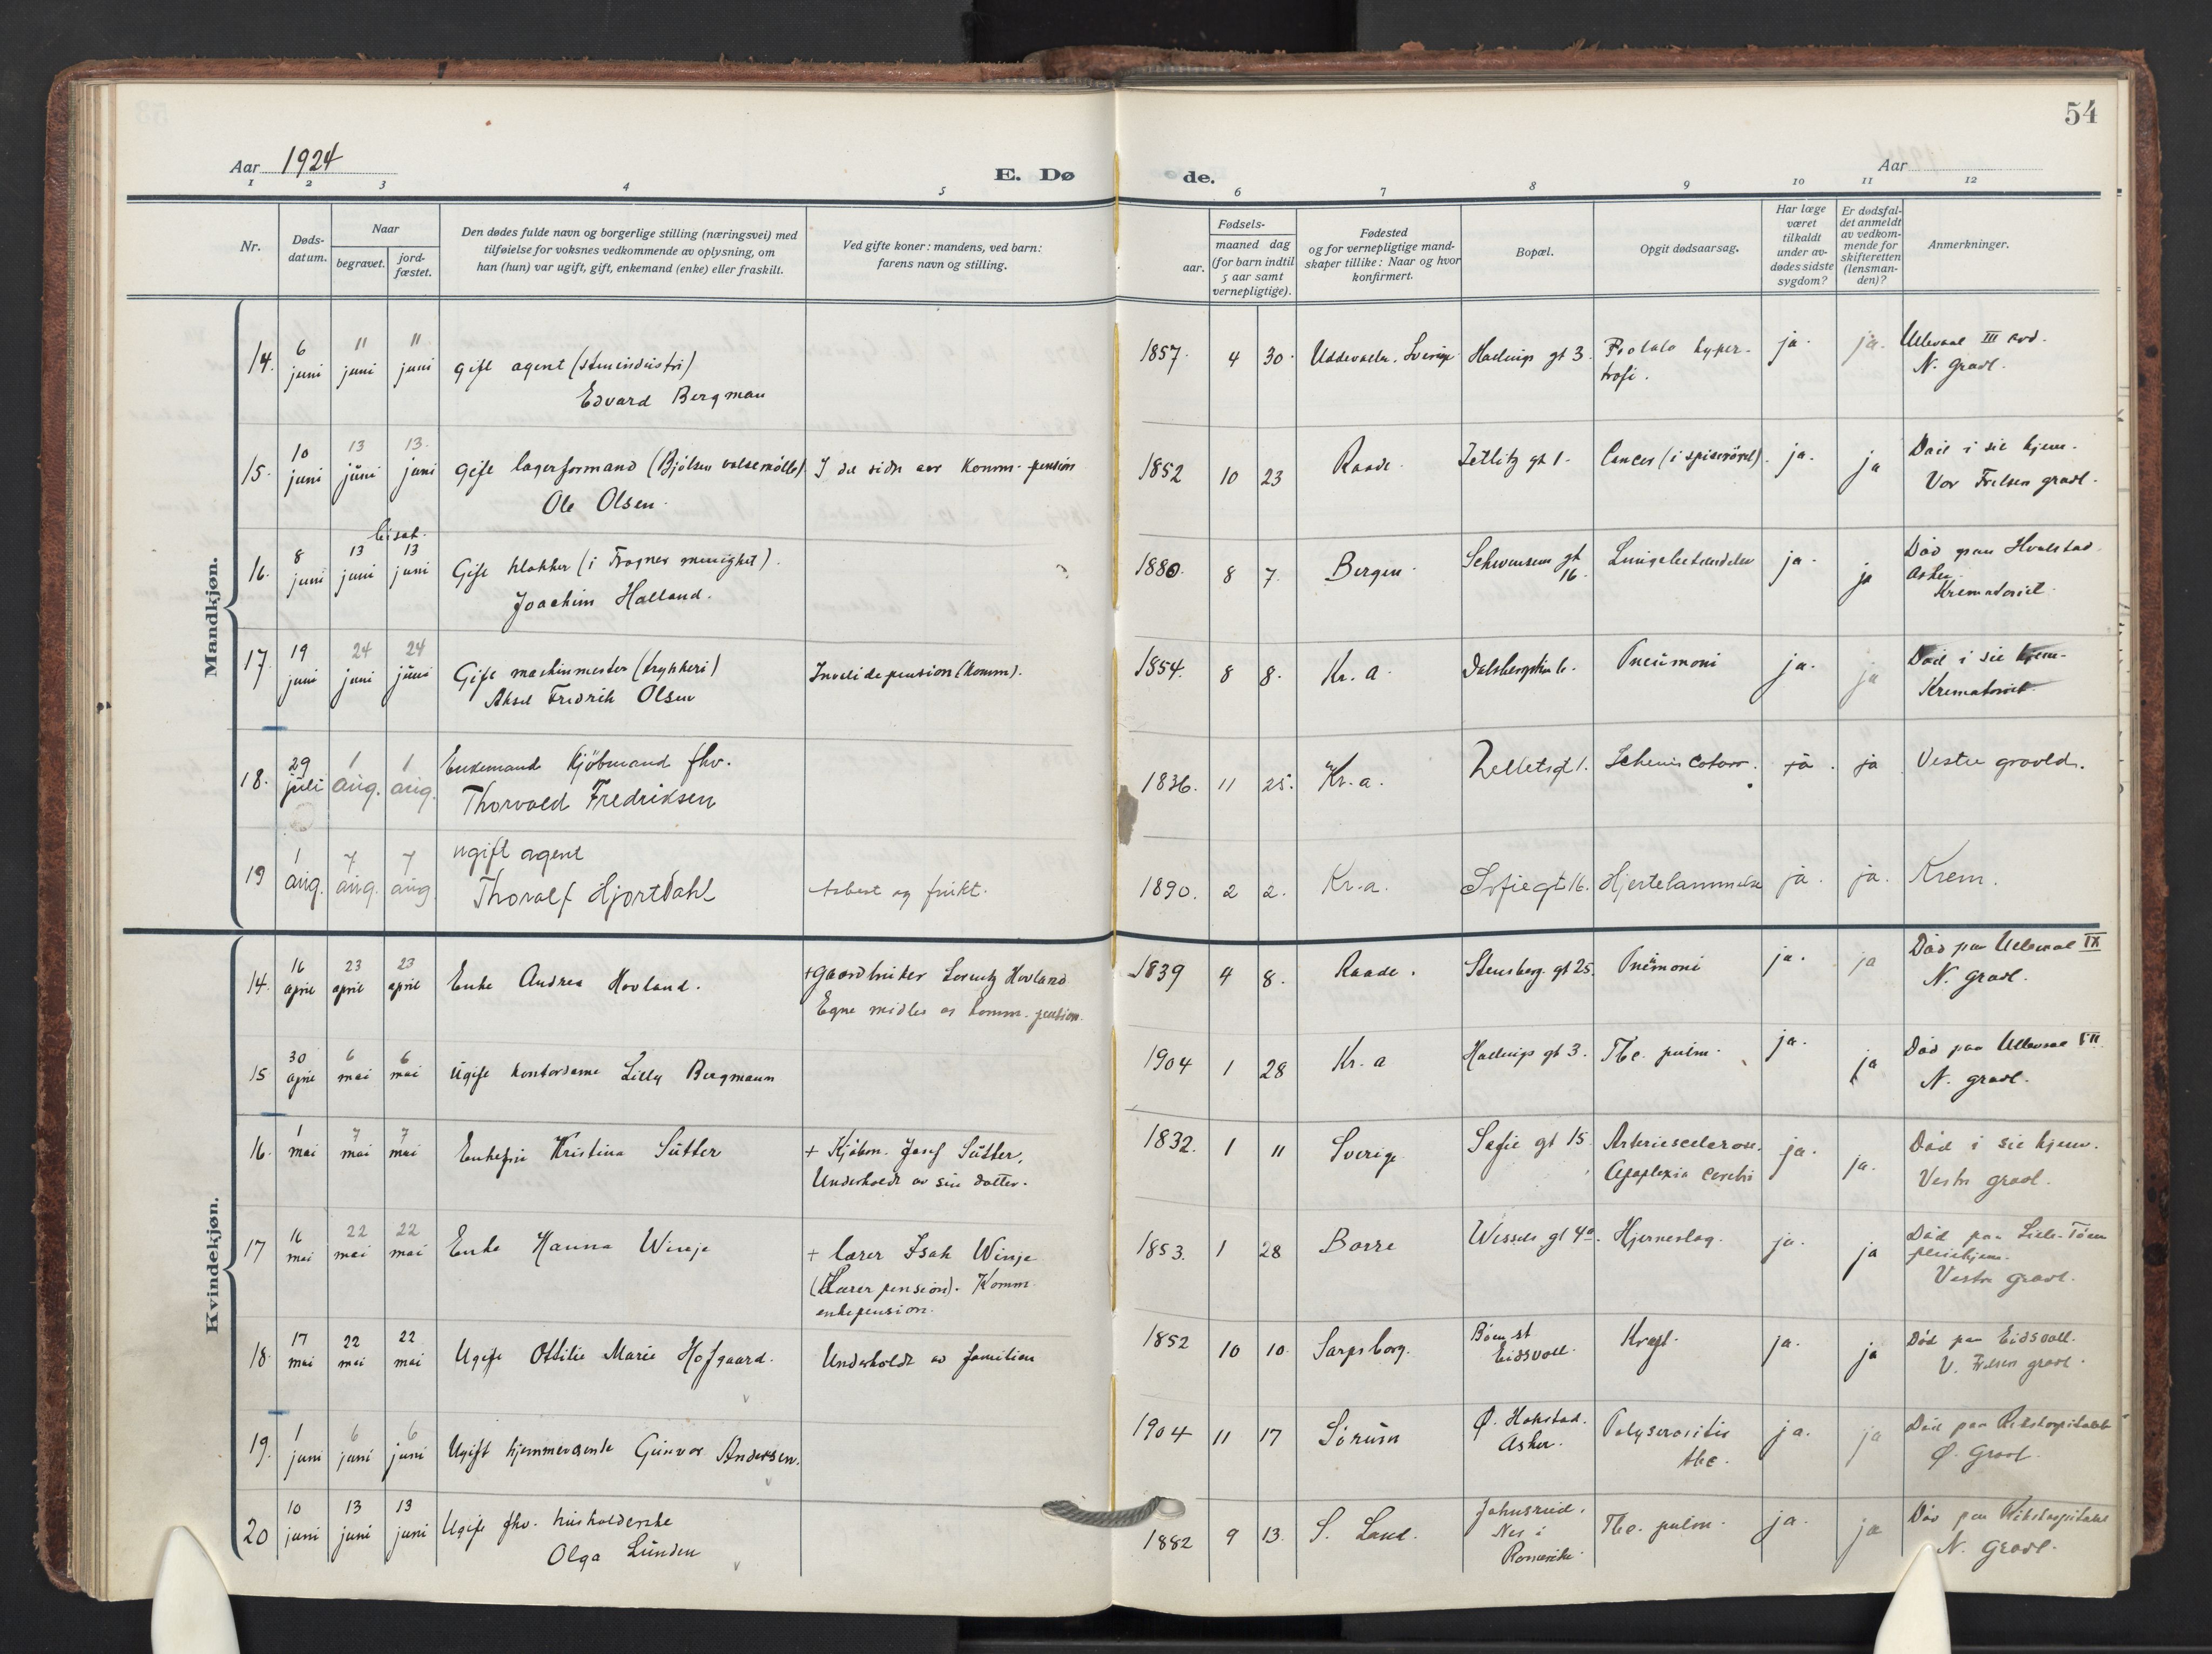 54
Aar 1924
E. Dø de.
Aar
1 2 3 4 5 6 7 8 9 10 11 12
Nr.
Døds-
datum.
Naar
begravet.
jord-
fæstet.
Den dødes fulde navn og borgerlige stilling (næringsvei) med
tilføielse for voksnes vedkommende av oplysning, om
han (hun) var ugift, gift, enkemand (enke) eller fraskilt.
Ved gifte koner: mandens, ved barn:
farens navn og stilling.
Fødsels-
aar.
maaned dag
(for barn indtil
5 aar samt
vernepligtige).
Fødested
og for vernepligtige mand-
skaper tillike: Naar og hvor
konfirmert.
Bopæl.
Opgit dødsaarsag.
Har læge
været
tilkaldt
under av-
dødes sidste
sygdom?
Er dødsfal-
det anmeldt
av vedkom-
mende for
skifteretten
(lensman-
den)?
Anmerkninger.
Mandkjøn.
14. 6 juni 11 juni 11 juni gift agent (stenindustri)
Edvard Bergman
1857. 4 30. Uddevalla. Sverige gt 3. hyper-
trofi. ja. ja. Ullevaal III avd.
N. gravl.
15. 10 juni 13 juni 13. juni gift lagerformand (Bjølsen valsemølle)
Ole Olsen.
I det sidste aar komm. pension
1852 10 23 Raade. Zetlitz gt 1. Cancer (i spiserøret). ja. ja Død i sit hjem.
Vor Frelsers gravl.
16. 8 juni bisat. 13 juni 13 juni Gift klokker (i Frogner menighet).
Joachim Halland.
1880. 8 7. Bergen. Schwensens gt
16. Lungebetændelse ja. ja Død paa Hvalstad
Asker.
Krematoriet.
17. 19 juni 24 juni 24 juni Gift maskinmester (trykkeri)
Aksel Fredrik Olsen
Invalidepension (komm).
1854. 8 8. Kr. a. 6. Pneumoni ja. ja Død i sit hjem.
Krematoriet.
18. 29 juli 1 aug. 1 aug. Enkemand Kjöbmand fhv.
Thorvald Fredriksen
1836. 11 25. Kr. a. ja. ja Vestre gravld.
19 1 aug. 7 aug. 7 aug. ugift agent
Thoralf Hjortdahl
Asbest og frukt.
1890. 2 2. Kr. a. Sofiegt 16. Hjertelammelse ja. ja. Krem.
Kvindekjøn.
14. 16 april 23 april 23 april Enke Andrea Hovland.
+ gaardbruker Lorentz Hovland
Egne midler og komm. pension.
1839 4 8. Raade. Stensberg. gt 25. Pneumoni ja. ja Død paa Ullevaal IX
N. gravl.
15 30 april 6 mai 6 mai Ugift kontordame Lilly Bergmann
1904 1 28 Kr. a gt 3. Tbc. pulm. ja. ja Død paa Ullevaal VII
N. gravl.
16. 1 mai 7 mai 7 mai Enkefru Kristina Sütter
+ Kjøbm. Josef Sütter.
Underholdt av sin datter.
1832. 1 11 Sverige Sofie gt 15. Arteriesclerose.
Apoplexia cerebri ja. ja. Død i sit hjem.
Vestre gravl.
17 16 mai 22 mai 22 mai Enke Hanna Winje
+ lærer Isak Winje
(Lærerpension). Komm.
enkepension.
1853. 1 28 Borre Wessels gt 4a. Hjerneslag. ja. ja Død paa Lille-Tøien
pleiehjem.
Vestre gravl.
18. 17 mai 22 mai 22 mai Ugift Ottilie Marie Hofgaard.
Underholdt av familien
1852 10 10. Sarpsborg. st
Eidsvoll. ja. ja Død paa Eidsvoll.
V. Frelsers gravl.
19. 1 juni 6 juni 6 juni Ugift hjemmeværende Gunvor Andersen.
1904 11 17 Sörum Ø. Hakstad.
Asker. Polyserositis
tbc. ja. ja Død paa Rikshospitalet
Ø. Gravl.
20 10 juni 13 juni 13 juni Ugift fhv. husholderske
Olga Lunden
1882 9 13. S. Land. Johnsrud.
Nes i
Romerike. Tbc. pulm. ja. ja Død paa Rikshospitalet
N. Gravl.